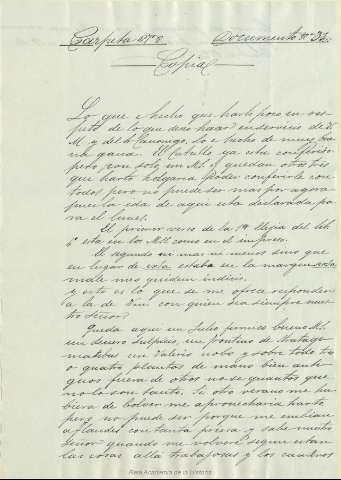 Carpeta nº 8. Documento nº 32.
Copia
Lo que he hecho que harto poco en res-
peto de lo que deseo hacer en servicio de V.
M. y del Sr. Canonigo, lo e hecho de muy bue
na gana. El Catullo va esta conferido
pero con solo un Ms. y quedan otros tres
que harto holgara poder conferirle con
todos pero no puede ser mas por agora
pues la ida de aqui esta declarada pa
ra el lunes.
El primer verso de la 1ª Elegia del lib.
6º esta en los Mss. como en el impreso.
El segundo ni mas ni menos sino que
en lugar de esta estaba en la margen ista
male mis quidem indicio.
Y esto es lo que se me ofrece responder
a la de Vm. con quien sea siempre nues-
tro Señor.
Queda aqui un Julio firmico bueno Ms.
un Severo Sulpicio, un frontino de stratage
matibus un Valerio nobo y sobre todo tres
o quatro plautos de mano bien anti-
guos fuera de otros no se quantos que
no lo son tanto. Si otro verano me hu
biera de bolver me aprovecharia harto
pero no puede ser porque me embian
a flandes con tanta priesa y sabe nuestro
Señor quando me volveré segun estan
las cosas alla trabajosas y los caminos
Real Academia de la Historia